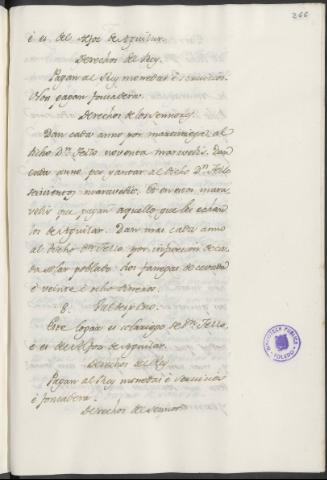 266
è es del Alfoz de Aguilar.
Derechos del Rey.
Pagan al Rey monedas è servicios.
Non pagan fonsadera.
Derechos de los Sennores.
Dan cada anno por martiniega al
dicho Dn. Tello noventa maravedis. Dan
cada anno por yantar al dicho Dn. Tello
seiscientos maravedis. Et en estos mara
vedis que pagan aquello que les echan
los de Aguilar. Dan mas cada anno
al dicho Dn. Tello por infurcion de ca
da solar poblado dos fanegas de cevada
è veinte è ocho dineros.
8.
Este logar es solariego de Dn. Tello,
è es del Alfoz de Aguilar.
Derechos del Rey
Pagan al Rey monedas è servicios
è fonsadera.
Derechos del Sennor
BIBLIOTECA PUBLICA
TOLEDO